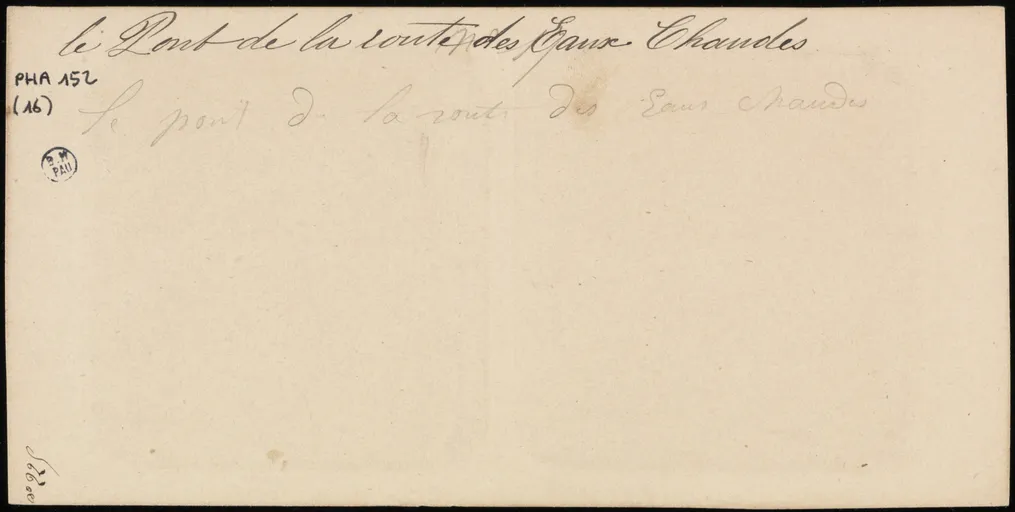 le Pont de la route des Eaux Chaudes
PHA 152
(16)
le pont de la route des Eaux chaudes
B.M
PAU